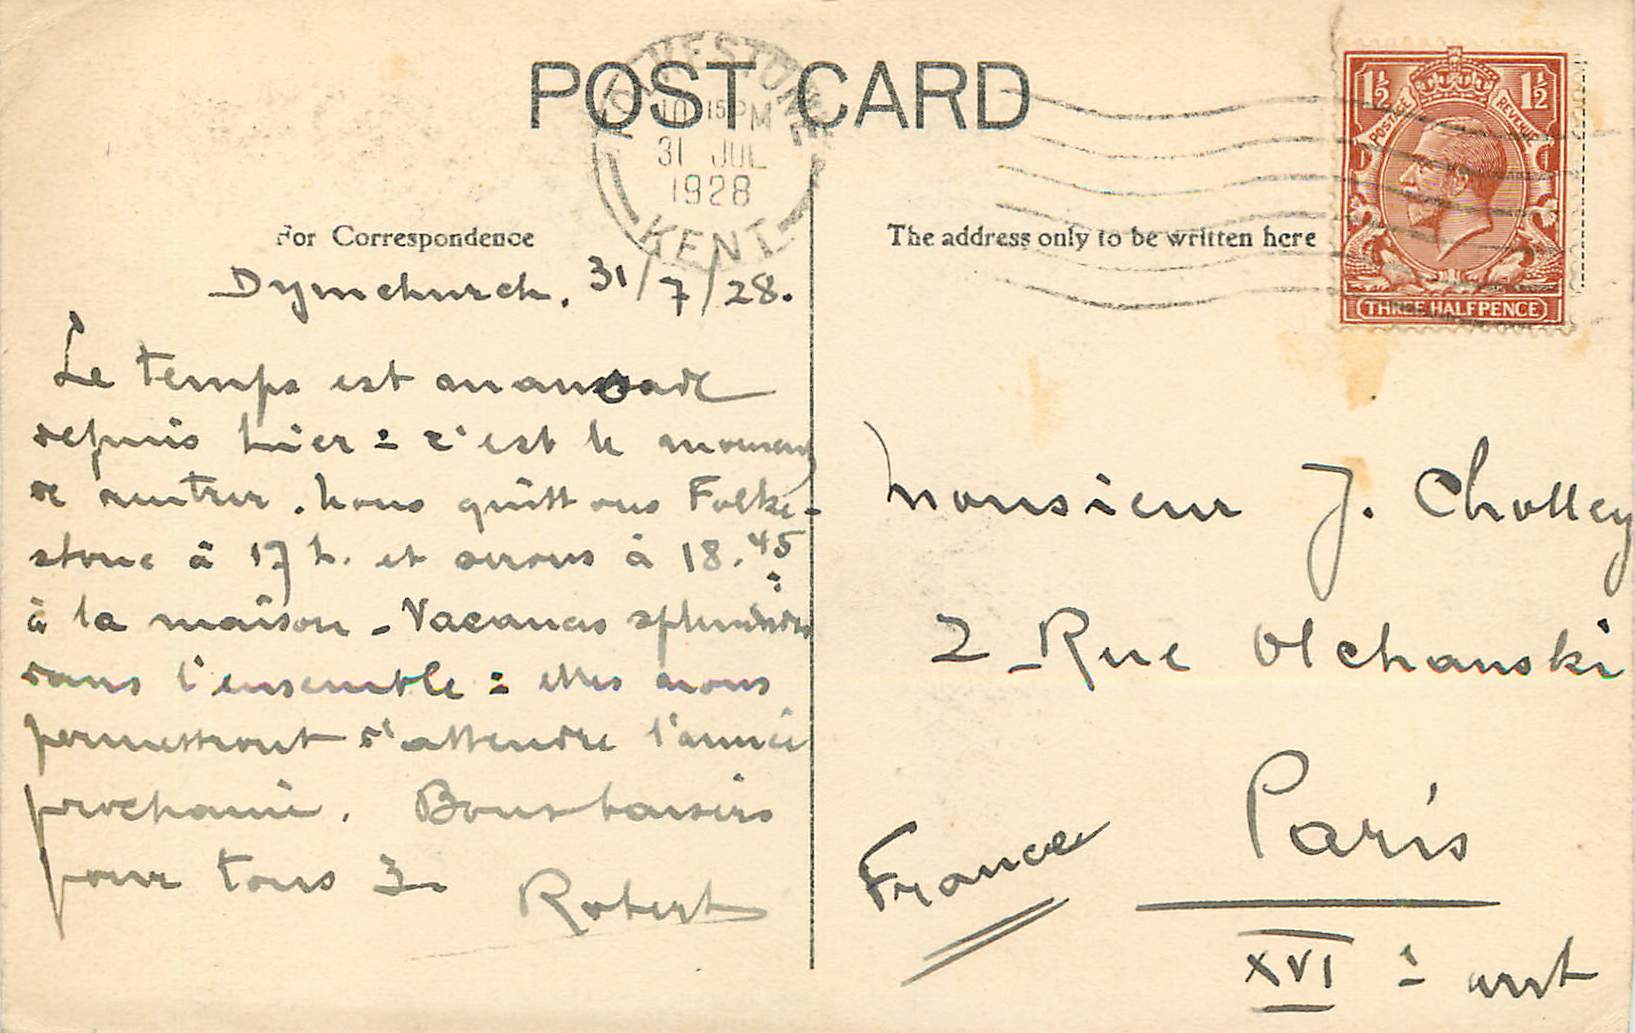 POST CARD
FOLKESTONE
10 15 PM
31 JUL
1928
KENT
1½ 1½
POSTAGE REVENUE
THREE HALFPENCE
For Correspondence
The address only to be written here
Dymchurch, 31/7/28.
Le temps est maussade
depuis hier = c'est le moment
de rentrer. Nous quittons Folke-
stone à 17 h. et serons à 18.45
à la maison - Vacances splendides
dans l'ensemble = elles nous
permettront d'attendre l'année
prochaine. Bons baisers
pour tous 3.
Robert
Monsieur J. Cholley
2 - Rue Olchanski
Paris
France
XVI è arrt